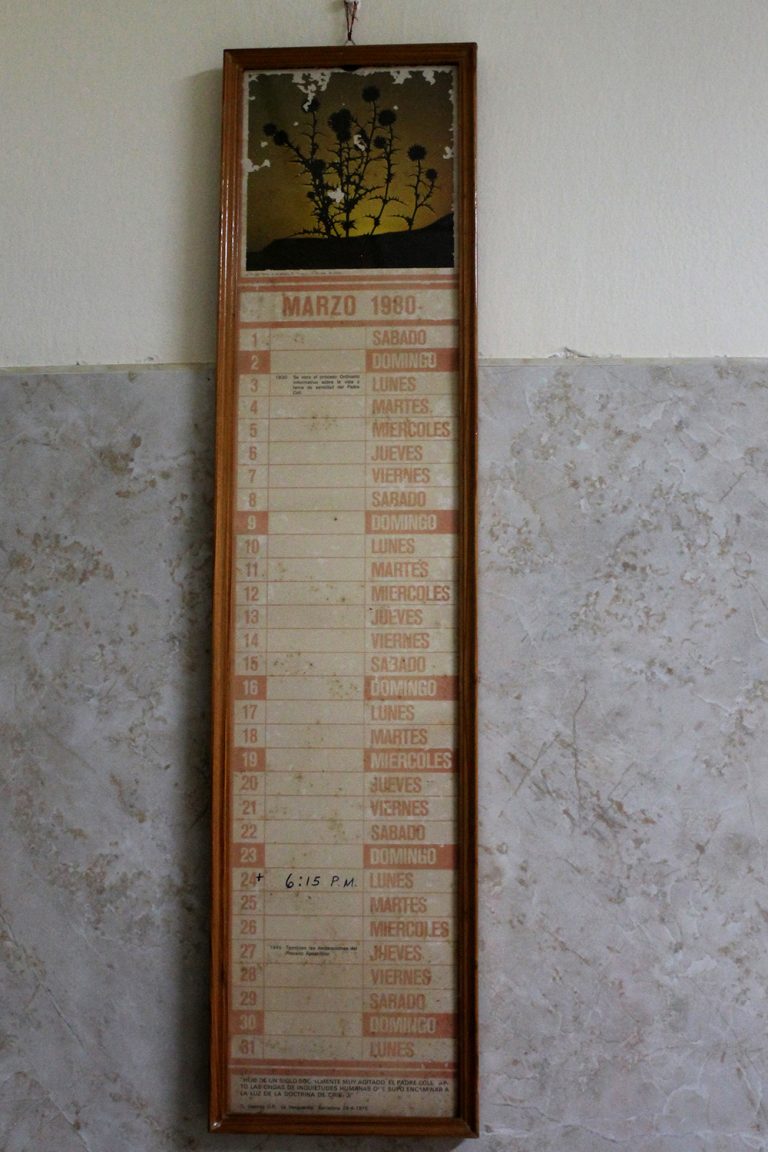 MARZO 1980
1 SABADO
2 DOMINGO
3 1930 Se inicia el proceso Ordinario LUNES
informativo sobre la vida y
fama de santidad del Padre
Coll.
4 MARTES
5 MIERCOLES
6 JUEVES
7 VIERNES
8 SABADO
9 DOMINGO
10 LUNES
11 MARTES
12 MIERCOLES
13 JUEVES
14 VIERNES
15 SABADO
16 DOMINGO
17 LUNES
18 MARTES
19 MIERCOLES
20 JUEVES
21 VIERNES
22 SABADO
23 DOMINGO
24 + 6:15 P.M. LUNES
25 MARTES
26 MIERCOLES
27 Terminan las declaraciones del JUEVES
Proceso Apostólico
28 VIERNES
29 SABADO
30 DOMINGO
31 LUNES
HIJO DE UN SIGLO MUY AGITADO, EL PADRE COLL
LAS ONDAS DE INQUIETUDES HUMANAS SUPO ENCAMINAR A
LA LUZ DE LA DOCTRINA DE
La Vanguardia. Barcelona